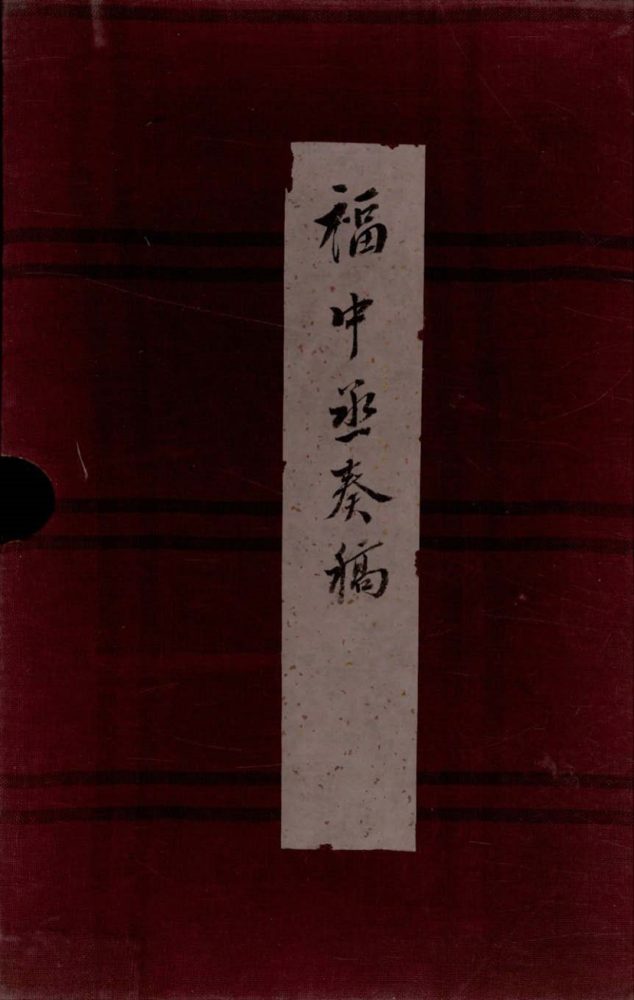 福中丞奏稿